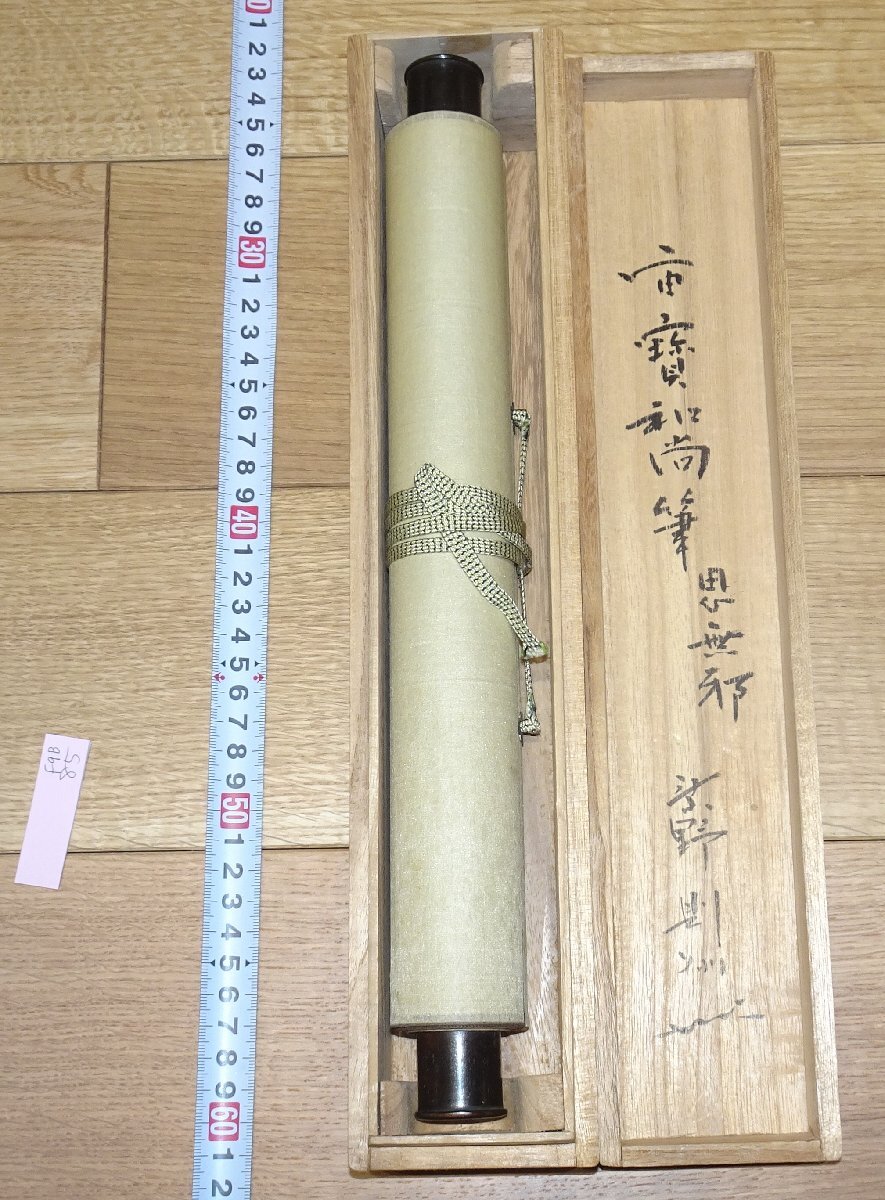 0
1
2
3
4
5
6
7
8
9
30
1
2
3
4
5
6
7
8
9
40
1
2
3
4
5
6
7
8
9
50
1
2
3
4
5
6
7
8
9
60
1
2
宙寶和尚筆
思無邪
紫野
F9B
85